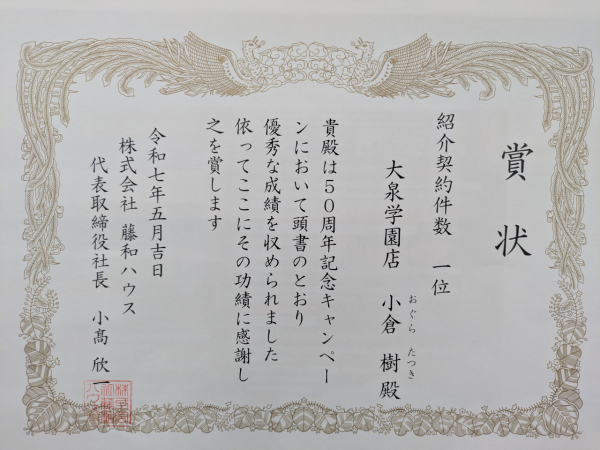 賞状
紹介契約件数 一位
大泉学園店 小倉 樹 殿
おぐら たつき
貴殿は50周年記念キャンペー
ンにおいて頭書のとおり
優秀な成績を収められました
依ってここにその功績に感謝し
之を賞します
令和七年五月吉日
株式会社 藤和ハウス
代表取締役社長 小髙 欣一